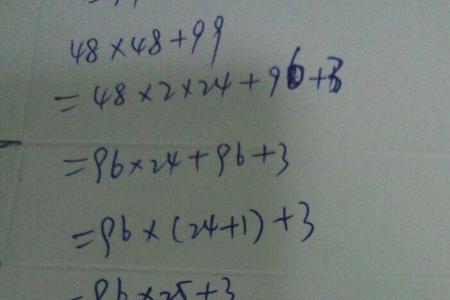 48×48+99
=48×2×24+96+3
=96×24+96+3
=96×(24+1)+3
=96×25+3